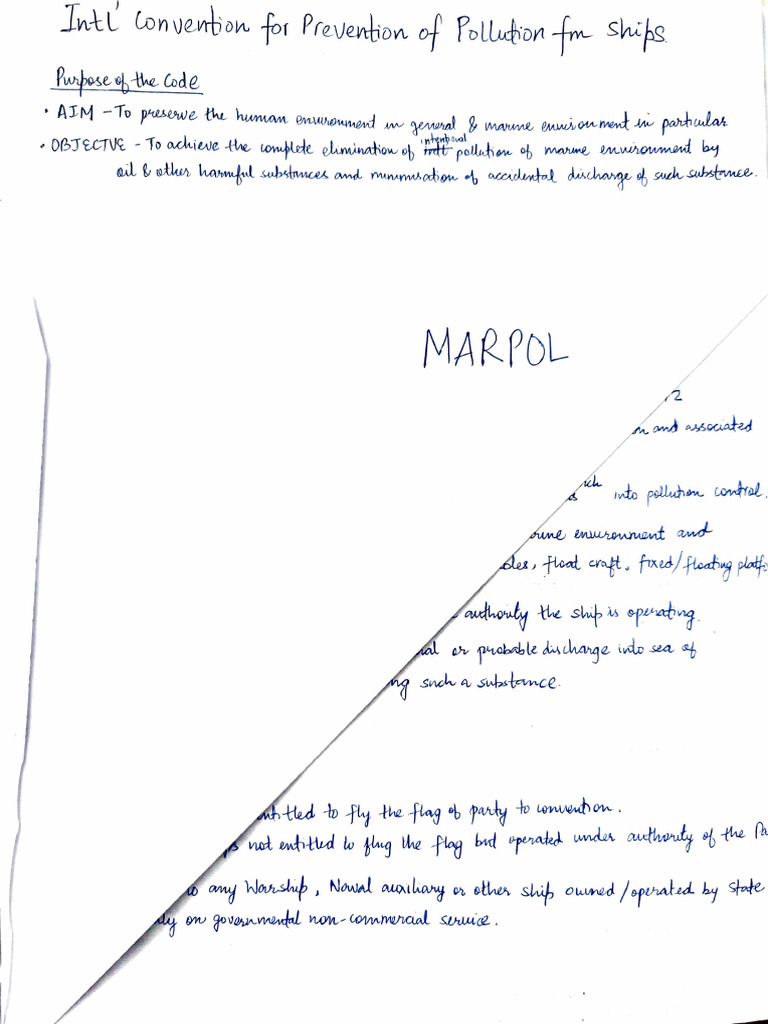 Intl' Convention for Prevention of Pollution fm Ships
Purpose of the Code
• AIM - To preserve the human environment in general & marine environment in particular
• OBJECTVE - To achieve the complete elimination of intentional pollution of marine environment by
oil & other harmful substances and minimisation of accidental discharge of such substance.
MARPOL
2
and associated
into pollution control.
environment and
float craft, fixed/floating
authority the ship is operating.
or probable discharge into sea of
such a substance.
to fly the flag of party to convention.
not entitled to flug the flag but operated under authority of the
any Warship, Naval auxiliary or other ship owned/operated by state
on governmental non-commercial service.